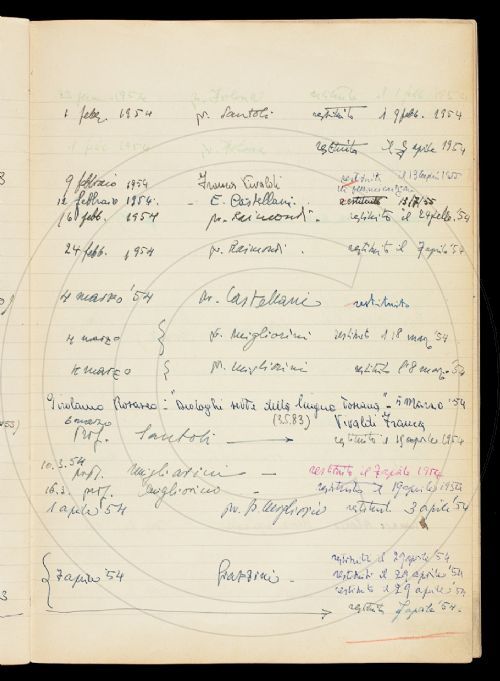 1 febr. 1954 pr. Santoli restituito 19 febb. 1954
restituito il aprile 1954
9 febbraio 1954 Franca Vivaldi restituito il 1955
12 febbraio 1954. - E. Castellani. restituito 13/7/55
16 febb. 1954 pr. Raimondi. restituito il 24 febb. '54
24 febb. 1954 pr. Raimondi. restituito il 7 aprile '54
4 marzo '54 pr. Castellani restituito
4 marzo { pr. Migliorini restituito il 18 marz. '54
4 marzo { pr. Migliorini restituito 18 marzo '54
Girolamo Rosasco: "Dialoghi sette della lingua toscana" - 5 Marzo '54
6 marzo (3.5.83) Vivaldi Franca
Prof. Santoli restituito il 15 aprile 1954
10.3.54
prof. Migliorini - restituito il 7 aprile 1954
16.3. prof. Migliorini - restituito il 19 aprile 1954
1 aprile '54 pr. B. Migliorini restituito 3 aprile '54
restituito il 29 aprile '54
{ 7 aprile '54 Grazzini - restituito il 29 aprile '54
restituito il 29 aprile '54
restituito aprile '54.